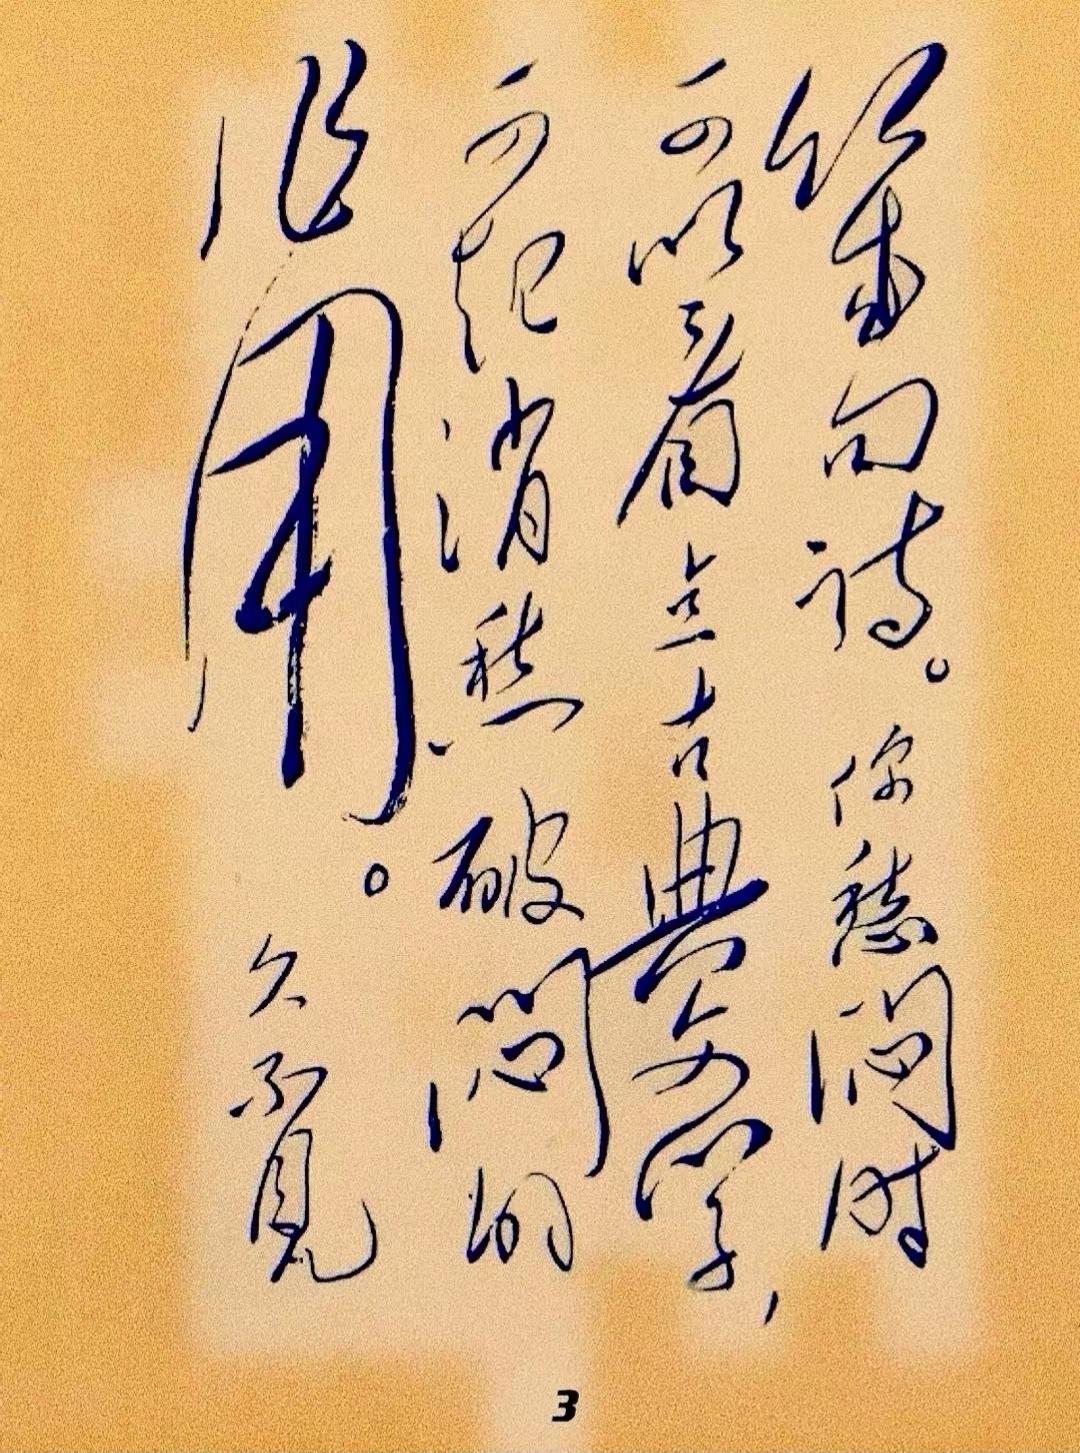 几句诗。你愁闷时
可以看点古典文学，
可起消愁破闷的
作用。久不见
3